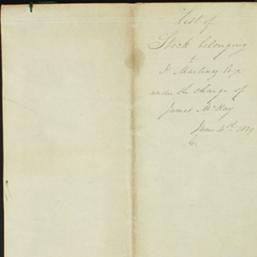 List of
Stock belonging
to
F. Martinez Esqr
under the charge of
James McKay
June 4th 1829